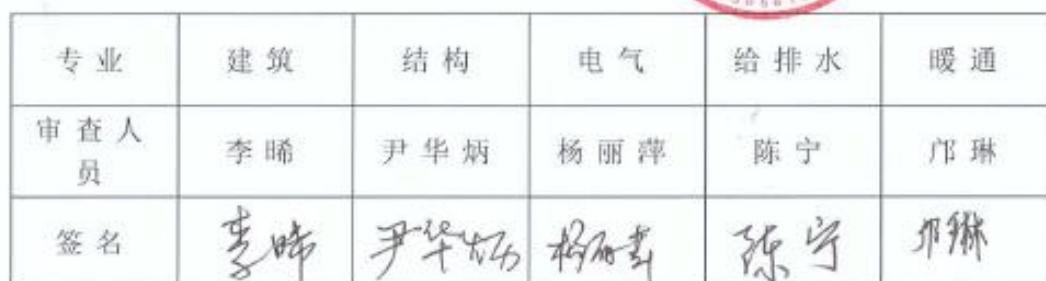 专业 建筑 结构 电气 给排水 暖通
审查人员 李晞 尹华炳 杨丽萍 陈宁 邝琳
签名 李晞 尹华炳 杨丽萍 陈宁 邝琳